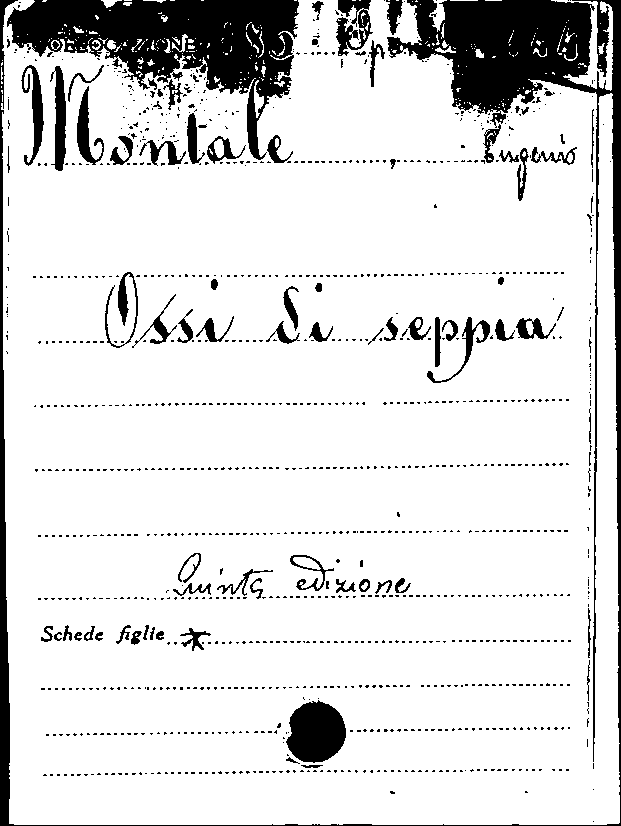 COLLOCAZIONE
Montale, Eugenio
Ossi di seppia
Quinta edizione
Schede figlie *